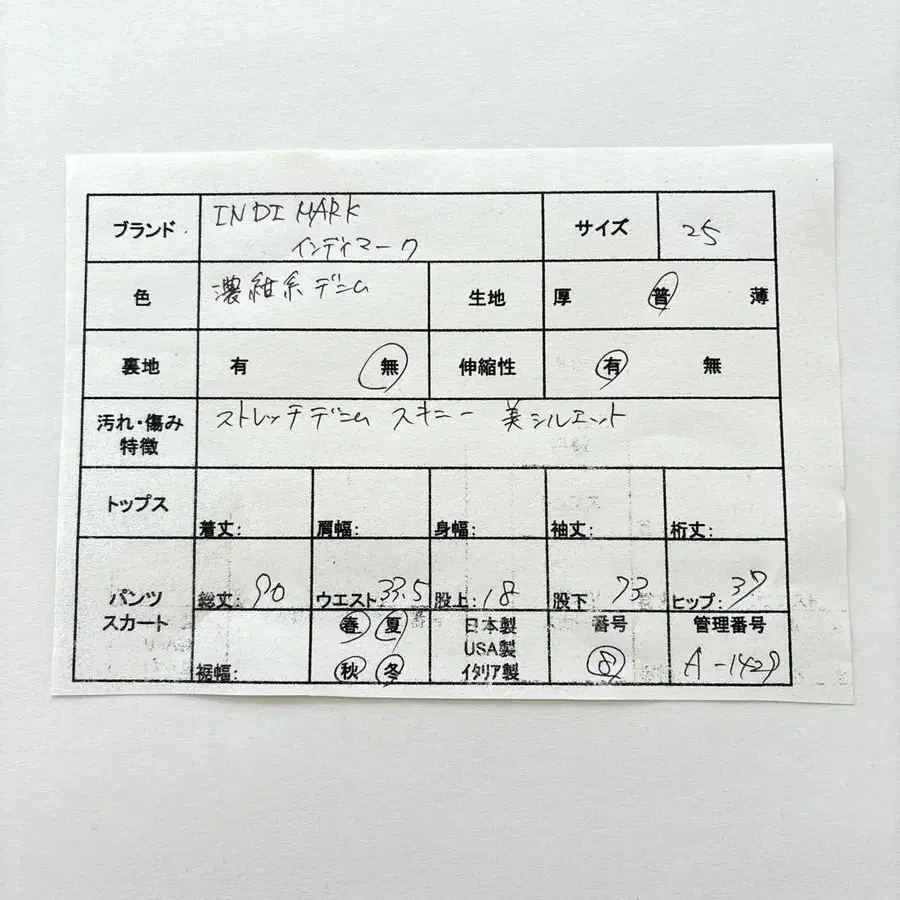 ブランド INDI MARK サイズ 25
インディマーク
色 濃紺系デニム 生地 厚 普 薄
裏地 有 無 伸縮性 有 無
汚れ・傷み ストレッチデニム スキニー 美シルエット
特徴
トップス 着丈: 肩幅: 身幅: 袖丈: 裄丈:
パンツ 総丈: 90 ウエスト: 33.5 股上: 18 股下 73 ヒップ: 37
スカート 裾幅: 春 夏 日本製 番号 管理番号
USA製
秋 冬 イタリア製 8 A-1429